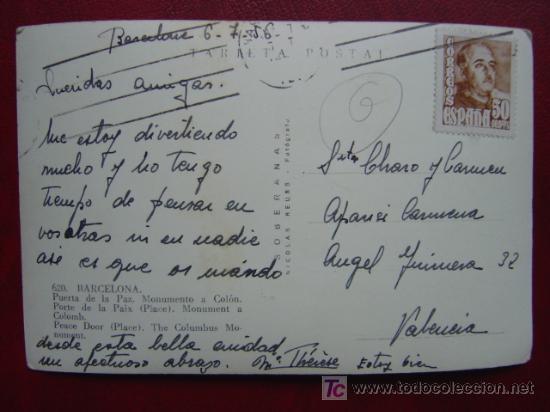 Barcelona 6-7-56-
TARJETA POSTAL
CORREOS
50
CTS
ESPAÑA
Queridas amigas.
Me estoy divirtiendo
mucho y no tengo
tiempo de pensar en
vosotras ni en nadie
así es que os mando
SOBERANAS
NICOLAS REUSS - Fotógrafo
Sritas Charo y Carmen
Aparisi Carmena
Angel Guimera 32
Valencia
620. BARCELONA.
Puerta de la Paz. Monumento a Colón.
Porte de la Paix (Place). Monument a
Colomb.
Peace Door (Place). The Columbus Mo-
nument.
desde esta bella ciudad
un afectuoso abrazo. Mª Thérèse Estoy bien
TC todocoleccion